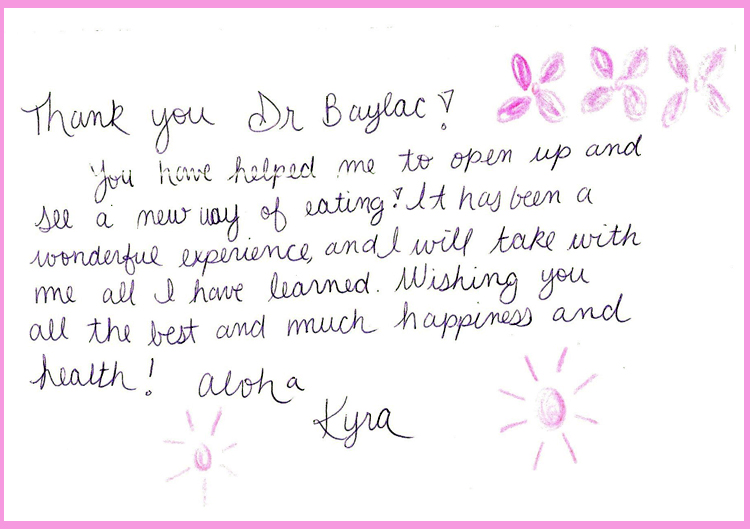 Thank you Dr Baylac!
You have helped me to open up and
see a new way of eating! It has been a
wonderful experience, and I will take with
me all I have learned. Wishing you
all the best and much happiness and
health! aloha
Kyra